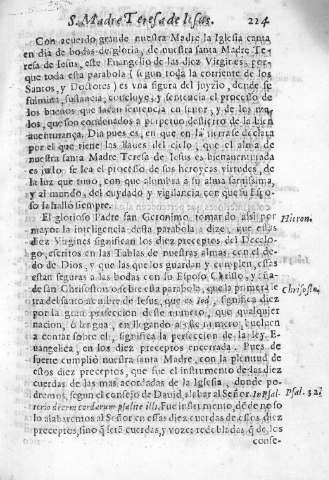 S. Madre Teresa de Iesus. 224
Con acuerdo grande nuestra Madre la Iglesia canta
en dia de bodas de gloria, de nuestra santa Madre Te-
resa de Iesus, este Euangelio de las diez Virgines, por-
que toda esta parabola (segun toda la corriente de los
Santos, y Doctores) es vna figura del juyzio, donde se
fulmina, sustancia, concluye, y sentencia el processo de
los buenos que sacan sentencia en fauor, y de los ma-
los, que son condenados a perpetuo destierro de la bien
auenturança. Dia pues es, en que en la tierra se declara
por el que tiene las llaues del cielo, que el alma de
nuestra santa Madre Teresa de Iesus es bienauenturada
es justo se lea el processo de sus heroycas virtudes, de
la luz que tuuo, con que alumbraua su alma santissima,
y al mundo, del cuydado y vigilancia con que su Espo-
so la halló siempre.
El glorioso Padre san Geronimo tomando assi por Hieron.
mayor la inteligencia desta parabola dize, que estas
diez Virgines significan los diez preceptos del Decalo-
go, escritos en las Tablas de nuestras almas con el de-
do de Dios, y que las que los guardan y cumplen, estas
estan seguras a las bodas con el Esposo Christo, y aña-
de san Chrisostomo sobre esta parabola, que la primera le Chrisosto.
tra del santo nombre de Iesus, que es Iod, significa diez
por la gran perfeccion deste numero, que qualquier
nacion, ò lengua, en llegando a este numero, bueluen
a contar sobre el, significa la perfeccion de la ley, E-
uangelica, en los diez preceptos encerrada. Pues de
suerte cumplió nuestra santa Madre, con la plenitud de
estos diez preceptos, que fue el instrumento de las diez
cuerdas de las mas acordadas de la Iglesia, donde po-
dremos, segun el consejo de Dauid, alabar al Señor. In psal- Psal. 32.
terio decem cordarum psallite illi. Fue instrumento, dõde no so
lo alabaremos al Señor en estas diez cuerdas destos diez
preceptos, sino q̃ serã cuerdas, y vozes redobladas, q̃ de los
conse-